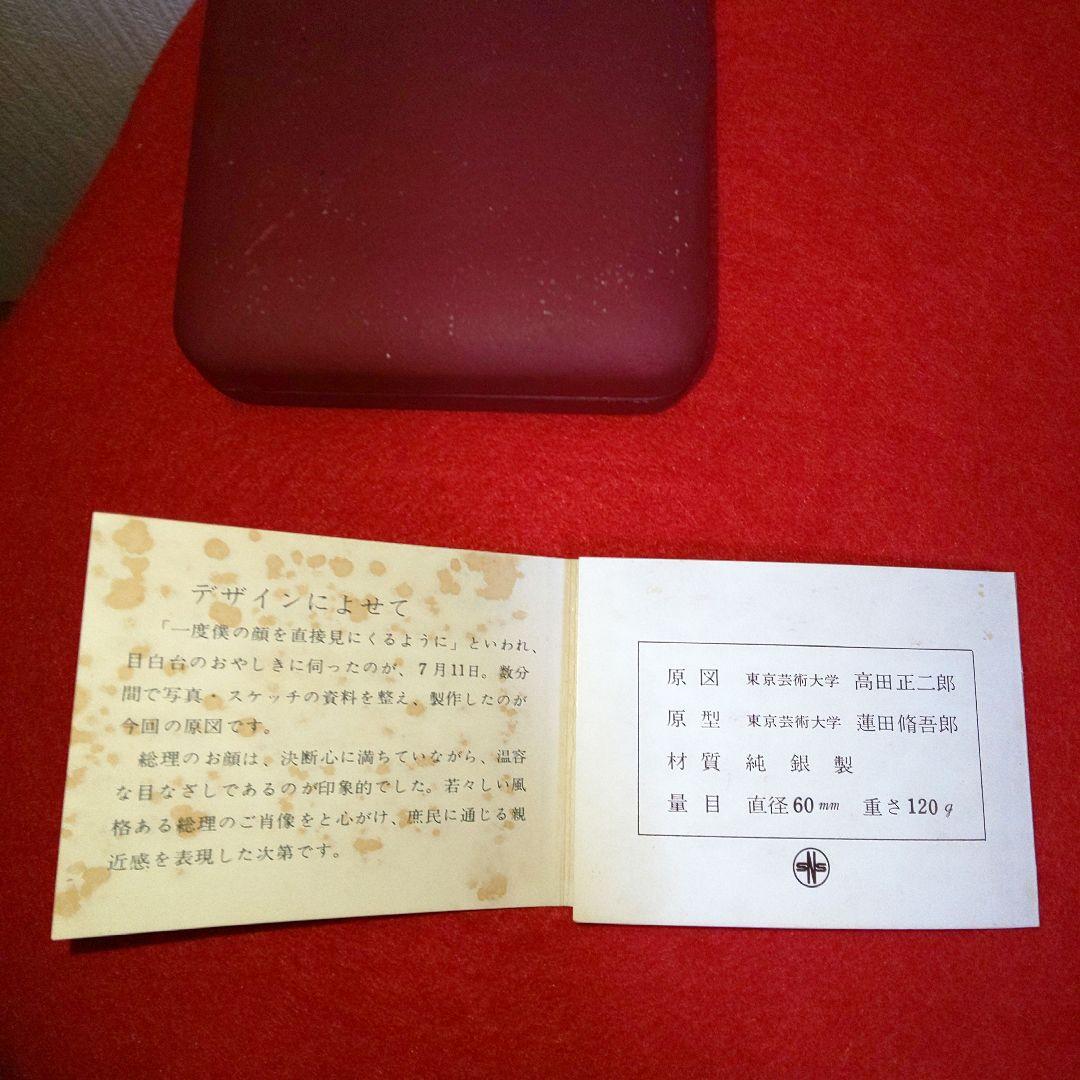 デザインによせて
「一度僕の顔を直接見にくるように」といわれ、
目白台のおやしきに伺ったのが、7月11日。数分
間で写真・スケッチの資料を整え、製作したのが
今回の原図です。
総理のお顔は、決断心に満ちていながら、温容
な目なざしであるのが印象的でした。若々しい風
格ある総理のご肖像をと心がけ、庶民に通じる親
近感を表現した次第です。
原図 東京芸術大学 高田正二郎
原型 東京芸術大学 蓮田脩吾郎
材質 純銀製
量目 直径60mm 重さ120g
SNS